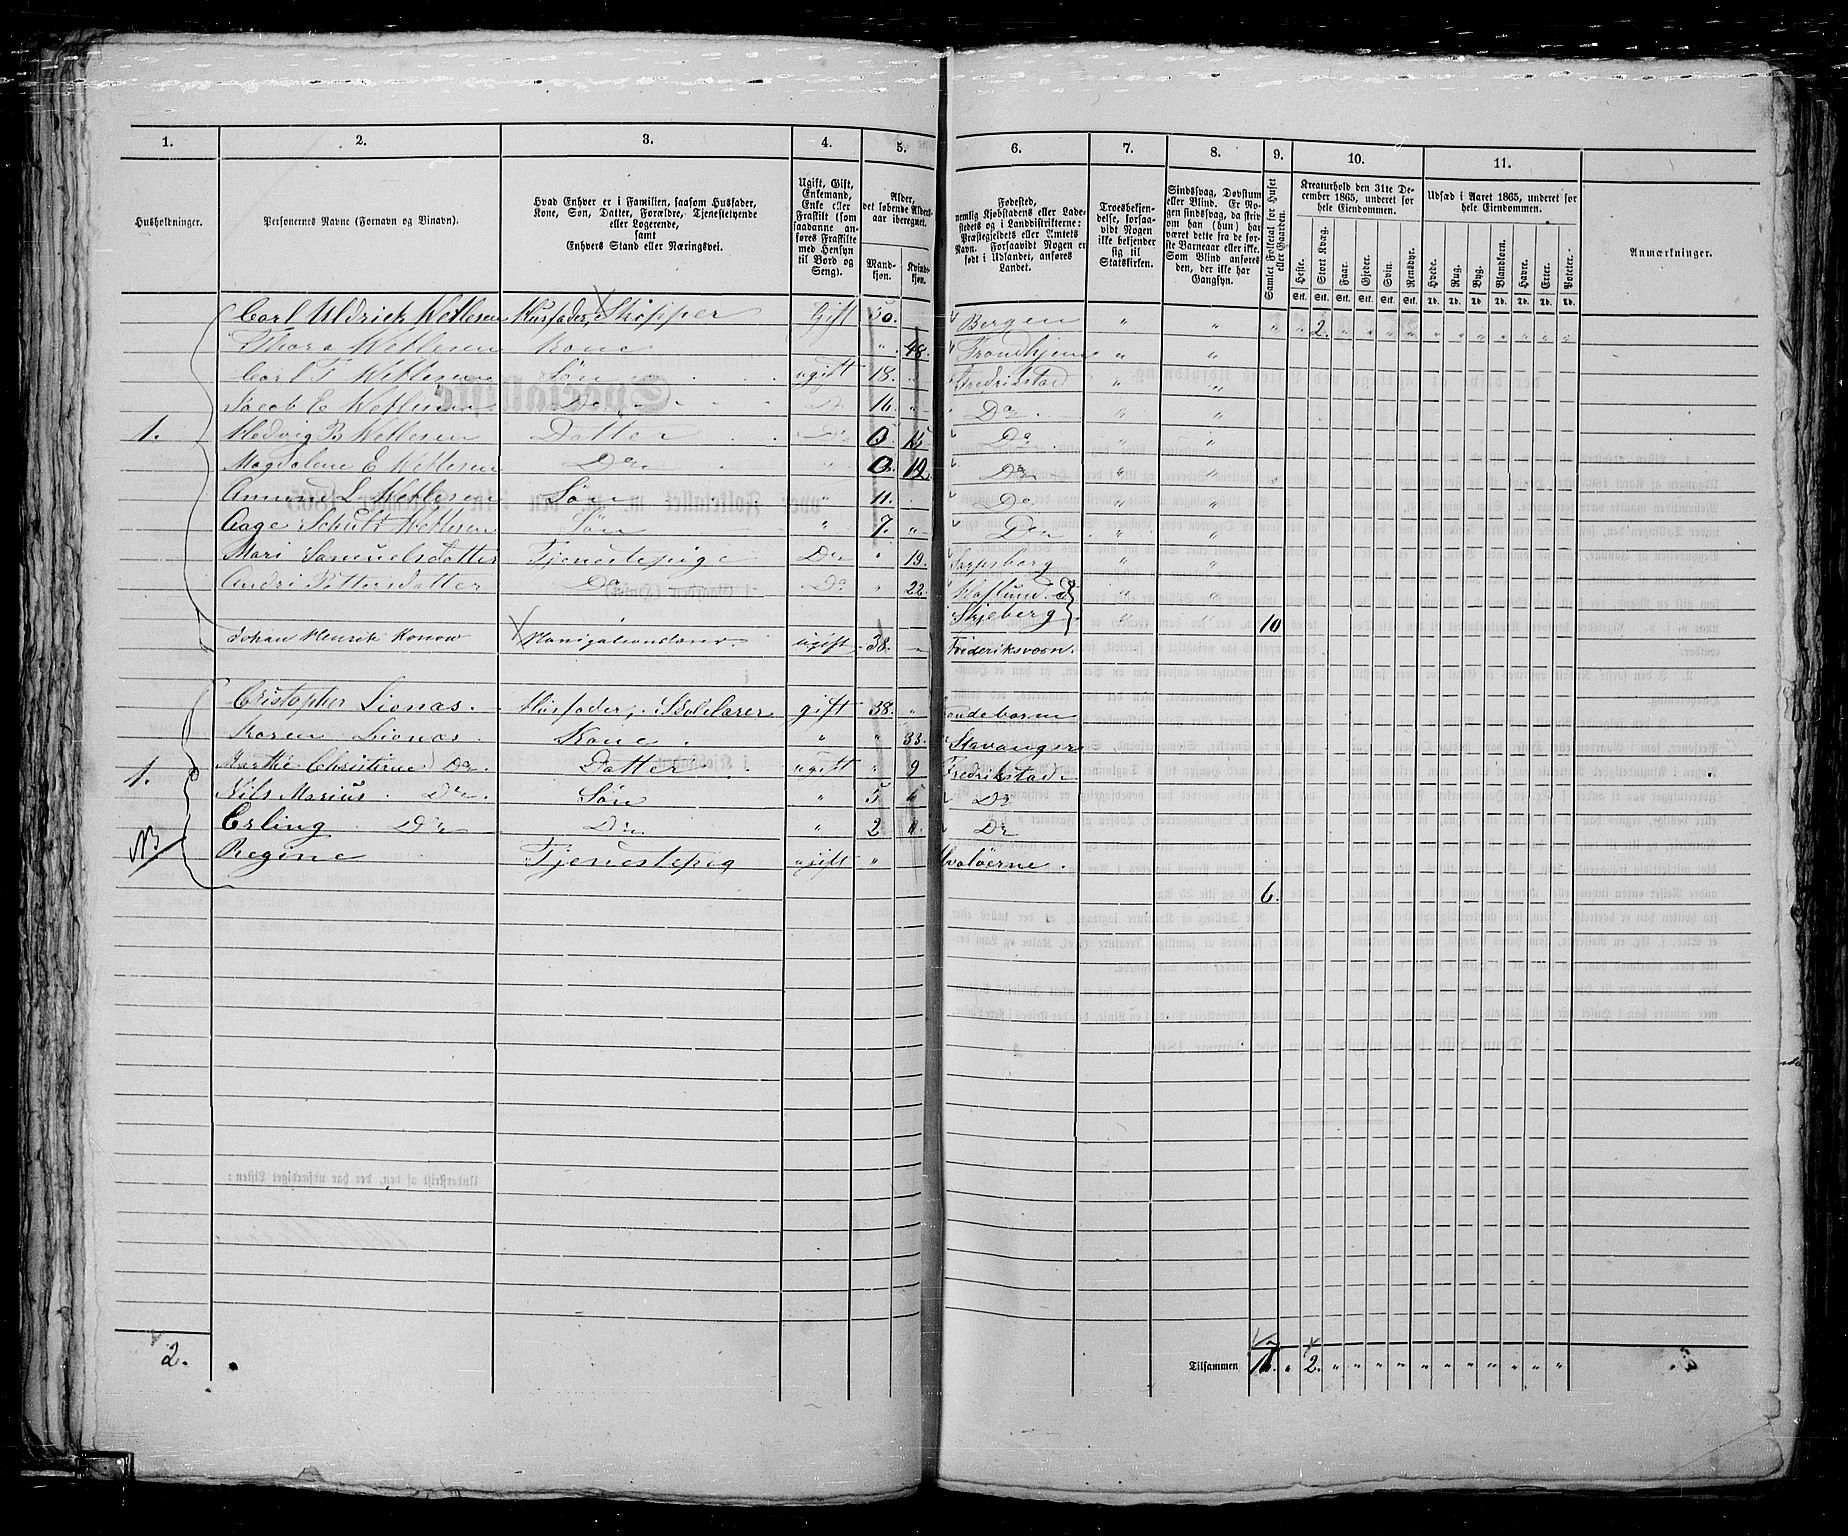 1. 2. 3. 4. 5. 6. 7. 8. 9. 10. 11.
Husholdninger.
Personernes Navne (Fornavn og Binavn).
Hvad Enhver er i Familien, saasom Husfader,
Kone, Søn, Datter, Forældre, Tjenestetyende
eller Logerende,
samt
Enhvers Stand eller Næringsvei.
Ugift, Gift,
Enkemand,
Enke eller
Fraskilt (som
saadanne an-
føres Fraskilte
med Hensyn
til Bord og
Seng).
Alder,
det løbende Alders-
aar iberegnet.
Mand-
kjøn.
Kvind-
kjøn.
Fødested,
nemlig Kjøbstadens eller Lade-
stedets og i Landdistrikterne:
Præstegjeldets eller Amtets
Navn. Forsaavidt Nogen er
født i Udlandet, anføres
Landet.
Troesbekjen-
delse, forsaa-
vidt Nogen
ikke bekjender
sig til
Statskirken.
Sindssvag, Døvstum
eller Blind. Er No-
gen sindssvag, da skriv
om han (hun) har
været dette fra de før-
ste Barneaar eller ikke.
Som Blind anføres
den, der ikke har
Gangsyn.
Samlet Folketal for Huset
eller Gaarden.
Kreaturhold den 31te De-
cember 1865, underet for
hele Eiendommen.
Heste. Stort Kvæg. Faar. Gjeder. Svin. Rensdyr.
Stk. Stk. Stk. Stk. Stk. Stk.
Udsæd i Aaret 1865, underet for
hele Eiendommen.
Hvede. Rug. Byg. Blandkorn. Havre. Erter. Poteter.
Td. Td. Td. Td. Td. Td. Td.
Anmærkninger.
Carl Uldrick Wetlesen Husfader, Skipper Gift 50. Bergen " " " " 2. " " " " " " " " " " "
Thora Wetlesen Kone " 48. Trondhjem " "
Carl T Wetlesen Søn ugift 18. Fredrikstad " "
Jacob E Wetlesen Do Do 16. " Do " "
1. Hedvig B Wetlesen Datter Do 0 15 Do " "
Magdalene E Wetlesen Do " 0 12 Do " "
Amund L Wetlesen Søn " 11. Do " "
Aage Schult Wetlesen Søn " 7. " Do " "
Mari Samuelsdatter Tjenestepige Do " 19. Sarpsborg " "
Andri Pettersdatter Do Do " 22. Haflund " "
Skjeberg " " 10
Johan Henrik Konow Navigationslærer ugift 38. " Frideriksværn.
Cristopher Lionæs. Husfader, Skolelærer gift 38. "
Karen Lionæs. Kone " " 33. Stavanger
1. Marthe Christine Do Datter ugift " 9 Fredrikstad
Nils Marius Do Søn " 5 Do
Erling Do Do " 2 " Do
NB Regine Tjenestepig ugift " Hvaløerne.
6.
2.
Tilsammen " 2. " " " " " " " " " " "